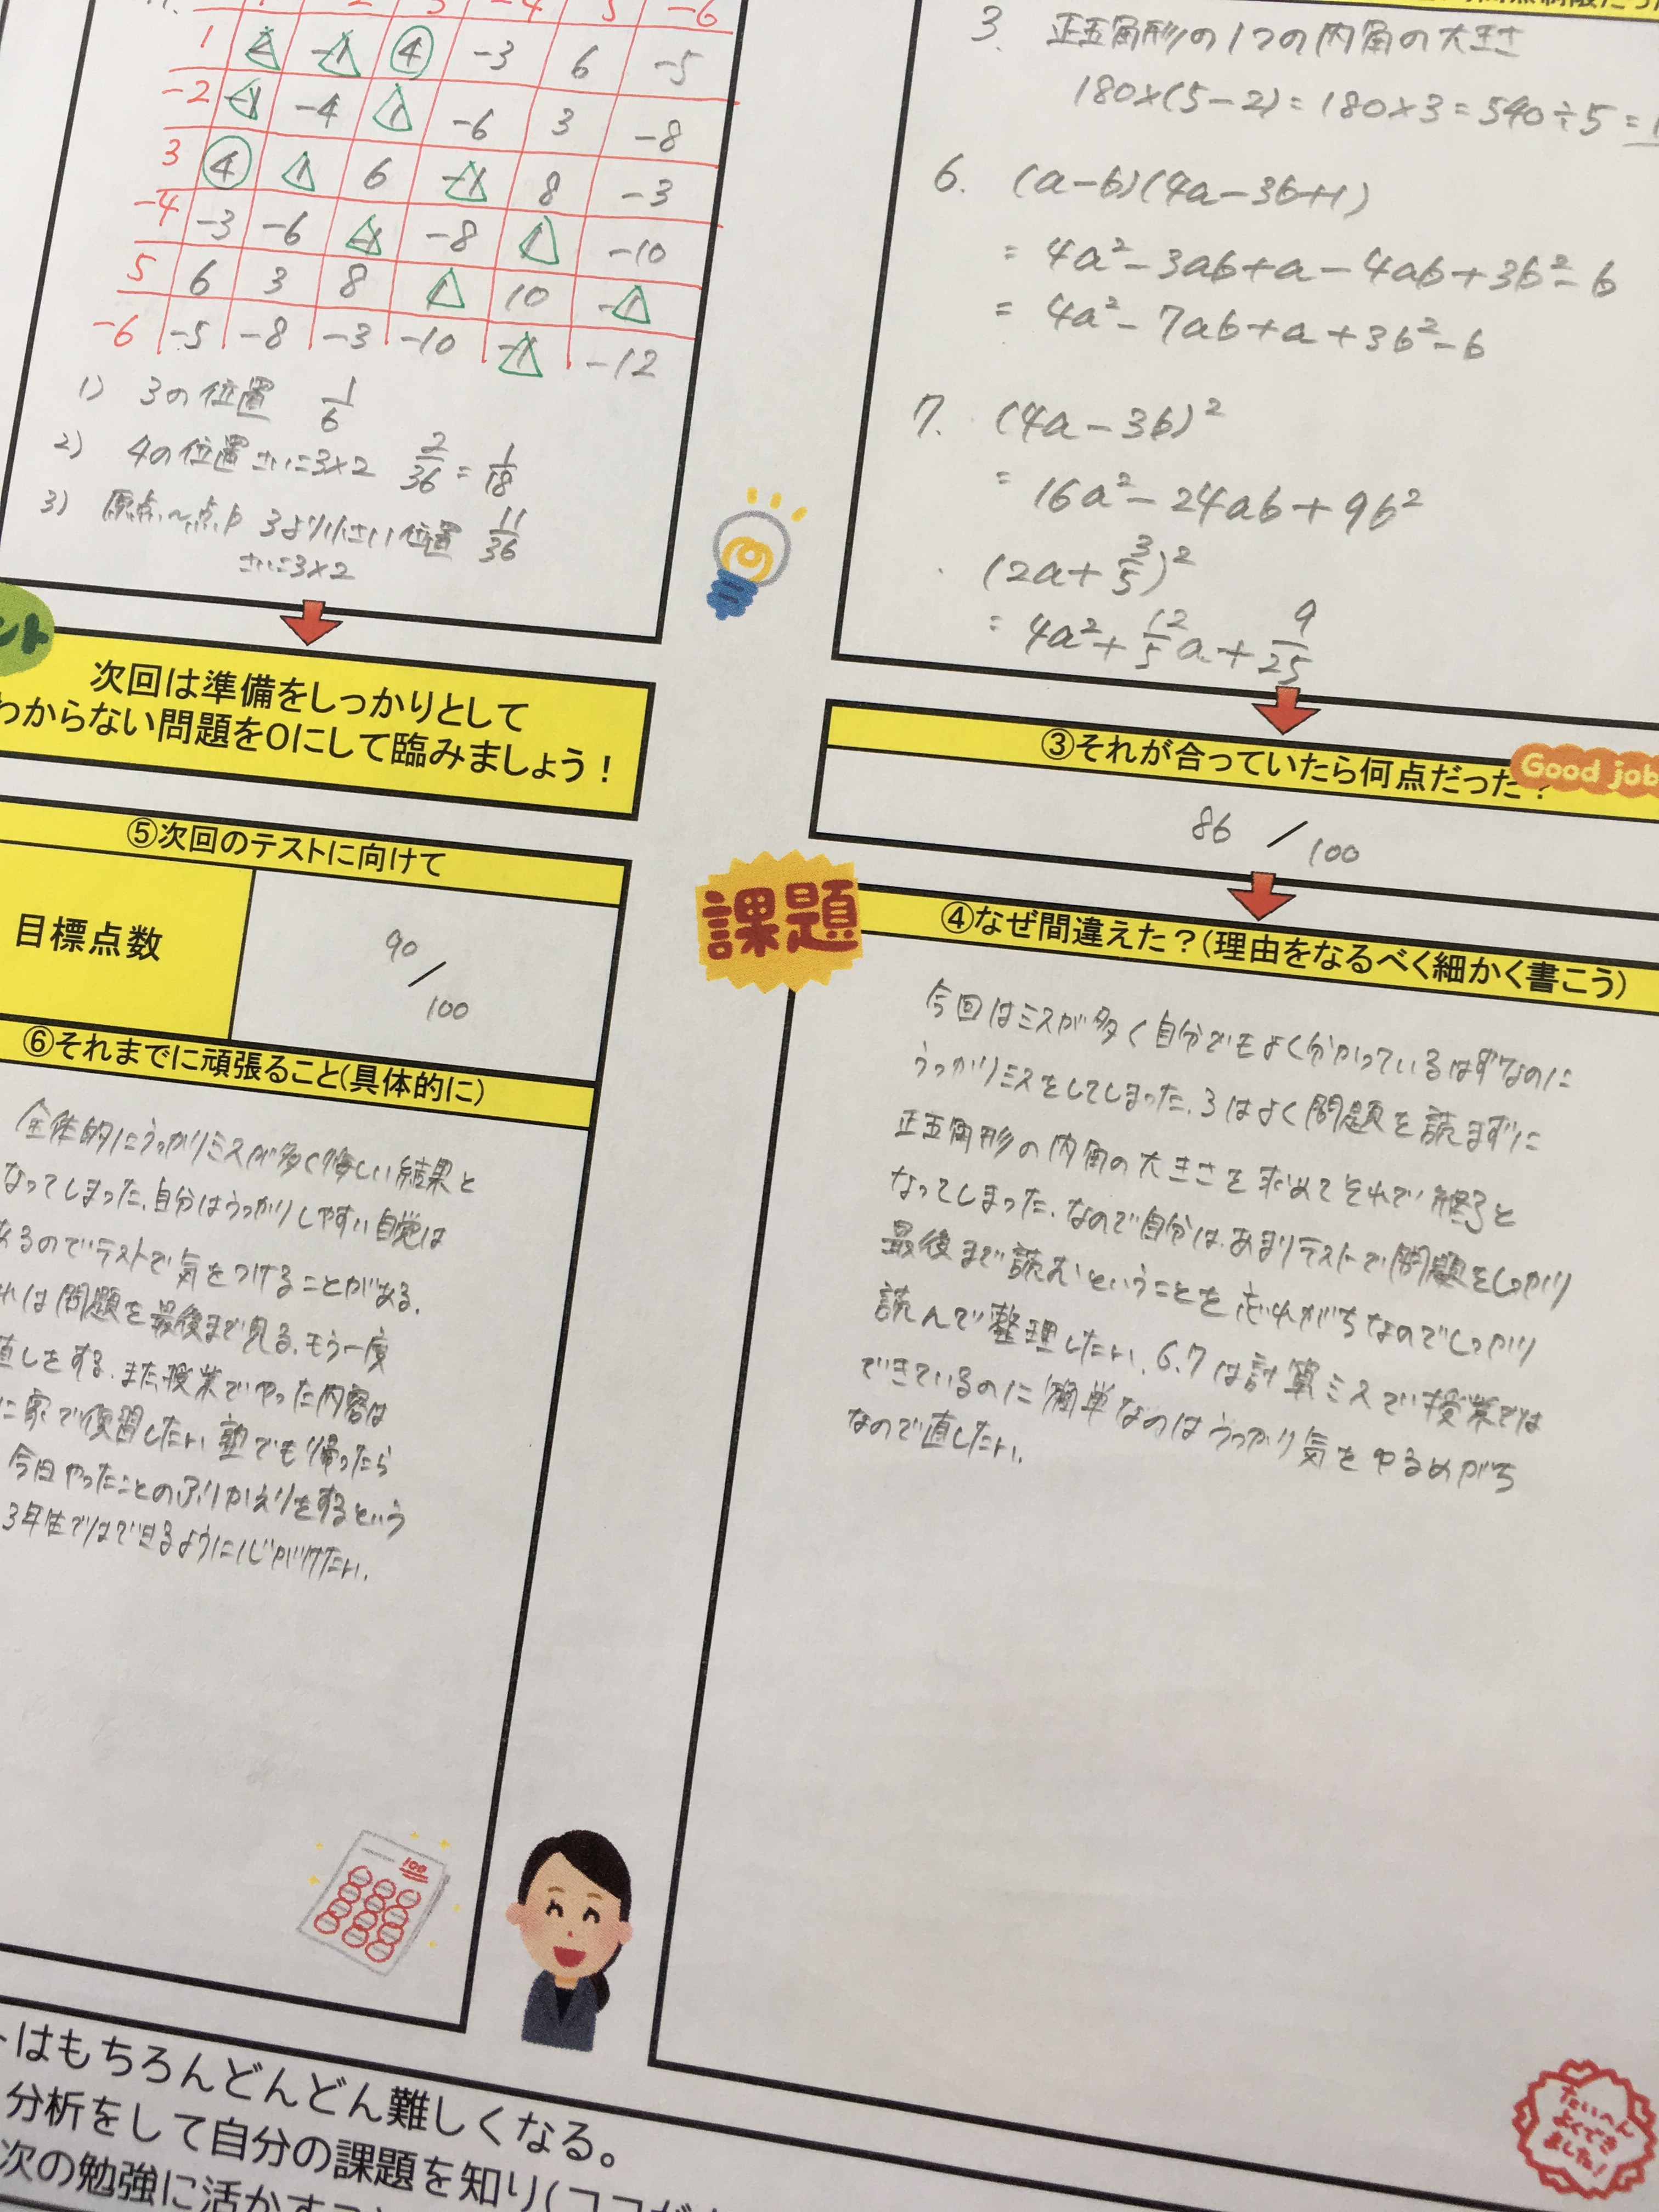 1 2 3 -4 5 -6
1 2 -1 4 -3 6 -5
-2 -1 -4 1 -6 3 -8
3 4 1 6 -1 8 -3
-4 -3 -6 -1 -8 1 -10
5 6 3 8 1 10 -1
-6 -5 -8 -3 -10 -1 -12
1) 3の位置 1/6
2) 4の位置 さいころ×2 2/36 = 1/18
3) 原点〜点P 3より小さい位置 11/36
ント
次回は準備をしっかりとして
わからない問題を0にして臨みましょう!
⑤次回のテストに向けて
目標点数
90/100
⑥それまでに頑張ること(具体的に)
全体的にうっかりミスが多く悔しい結果と
なってしまった。自分はうっかりしやすい自覚は
あるのでテストで気をつけることがある。
れは問題を最後まで見る。もう一度
直しをする。また授業でやった内容は
に家で復習したい。塾でも帰ったら
今日やったことのふりかえりをするという
3年生ではできるように
100
3. 正五角形の1つの内角の大きさ
180×(5-2)=180×3=540÷5=
6. (a-b)(4a-3b+1)
= 4a²-3ab+a-4ab+3b²-b
= 4a²-7ab+a+3b²-b
7. (4a-3b)²
= 16a²-24ab+9b²
(2a+3/5)²
= 4a²+12/5a+9/25
③それが合っていたら何点だった?
Good job
86/100
課題
④なぜ間違えた?(理由をなるべく細かく書こう)
今回はミスが多く自分でもよく分かっているはずなのに
うっかりミスをしてしまった。3はよく問題を読まずに
正五角形の内角の大きさを求めてそれで終了と
なってしまった。なので自分は、あまりテストで問題をしっかり
最後まで読むということを忘れがちなのでしっかり
読んで整理したい。6.7は計算ミスで授業では
できているのに簡単なのはうっかり気をゆるめがち
なので直したい。
はもちろんどんどん難しくなる。
分析をして自分の課題を知り(ココが
次の勉強に活かす
たいへん
よくでき
ました!